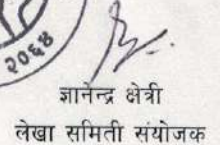 २०६४
ज्ञानेन्द्र क्षेत्री
लेखा समिती संयोजक